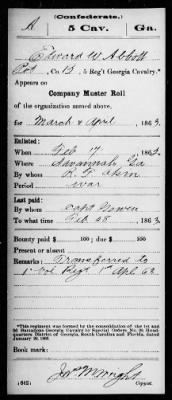 (Confederate.)
A 5 Cav. Ga.
Edward W. Abbott
Co. B, 5 Reg't Georgia Cavalry.*
Appears on
Company Muster Roll
of the organization named above,
for March & April, 1863.
Enlisted:
When Feb 17, 1862.
Where Savannah Ga
By whom
Period war
Last paid:
By whom Capt Bowen
To what time Feb 28, 1863.
Bounty paid $ 100; due $ 100
Present or absent
Remarks: Transferred to
1st Vol Regt 1st Apl 63
*This regiment was formed by the consolidation of the 1st and 2d Battalions Georgia Cavalry by Special Orders No. Headquarters District of Georgia, South Carolina and Florida, dated January 20, 1863.
Book mark:
(642) Copyist.